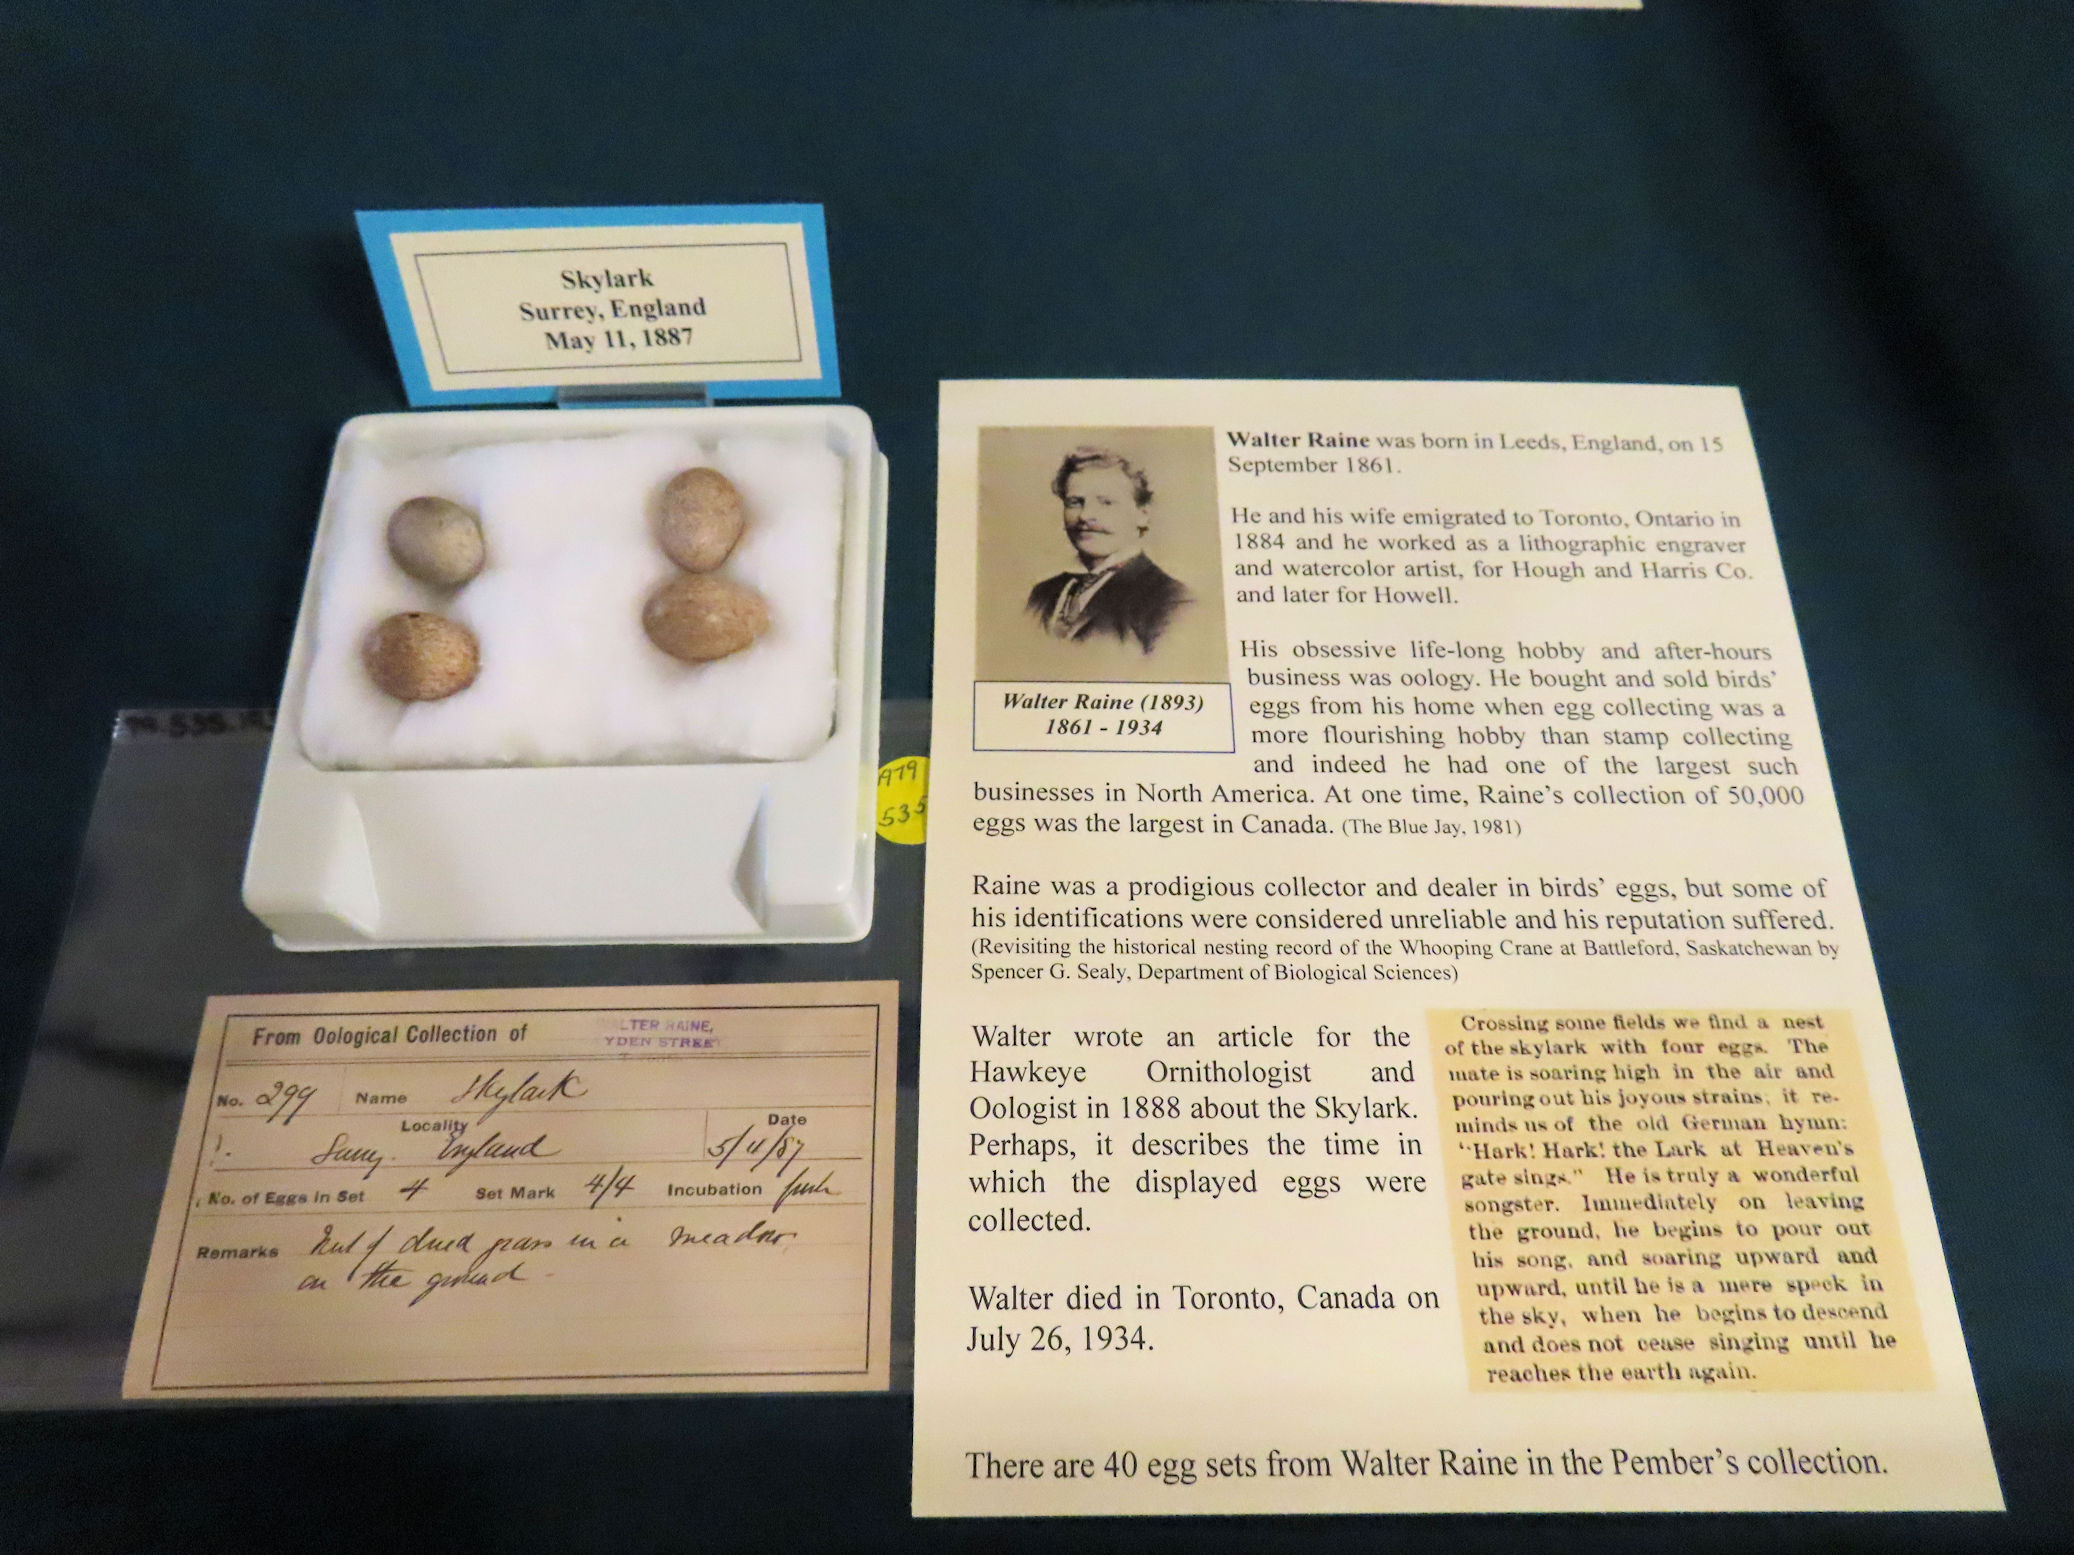 Skylark
Surrey, England
May 11, 1887
1979
535
From Oological Collection of
LTER RAINE,
YDEN STREET
No. 299 Name Skylark
Locality
Date
Surrey. England
5/11/87
No. of Eggs in Set 4 Set Mark 4/4 Incubation fresh
Remarks Nest of dried grass in a meadow
on the ground -
Walter Raine (1893)
1861 - 1934
Walter Raine was born in Leeds, England, on 15
September 1861.
He and his wife emigrated to Toronto, Ontario in
1884 and he worked as a lithographic engraver
and watercolor artist, for Hough and Harris Co.
and later for Howell.
His obsessive life-long hobby and after-hours
business was oology. He bought and sold birds'
eggs from his home when egg collecting was a
more flourishing hobby than stamp collecting
and indeed he had one of the largest such
businesses in North America. At one time, Raine's collection of 50,000
eggs was the largest in Canada. (The Blue Jay, 1981)
Raine was a prodigious collector and dealer in birds' eggs, but some of
his identifications were considered unreliable and his reputation suffered.
(Revisiting the historical nesting record of the Whooping Crane at Battleford, Saskatchewan by
Spencer G. Sealy, Department of Biological Sciences)
Walter wrote an article for the
Hawkeye Ornithologist and
Oologist in 1888 about the Skylark.
Perhaps, it describes the time in
which the displayed eggs were
collected.
Walter died in Toronto, Canada on
July 26, 1934.
Crossing some fields we find a nest
of the skylark with four eggs. The
mate is soaring high in the air and
pouring out his joyous strains; it re-
minds us of the old German hymn:
"Hark! Hark! the Lark at Heaven's
gate sings." He is truly a wonderful
songster. Immediately on leaving
the ground, he begins to pour out
his song, and soaring upward and
upward, until he is a mere speck in
the sky, when he begins to descend
and does not cease singing until he
reaches the earth again.
There are 40 egg sets from Walter Raine in the Pember's collection.